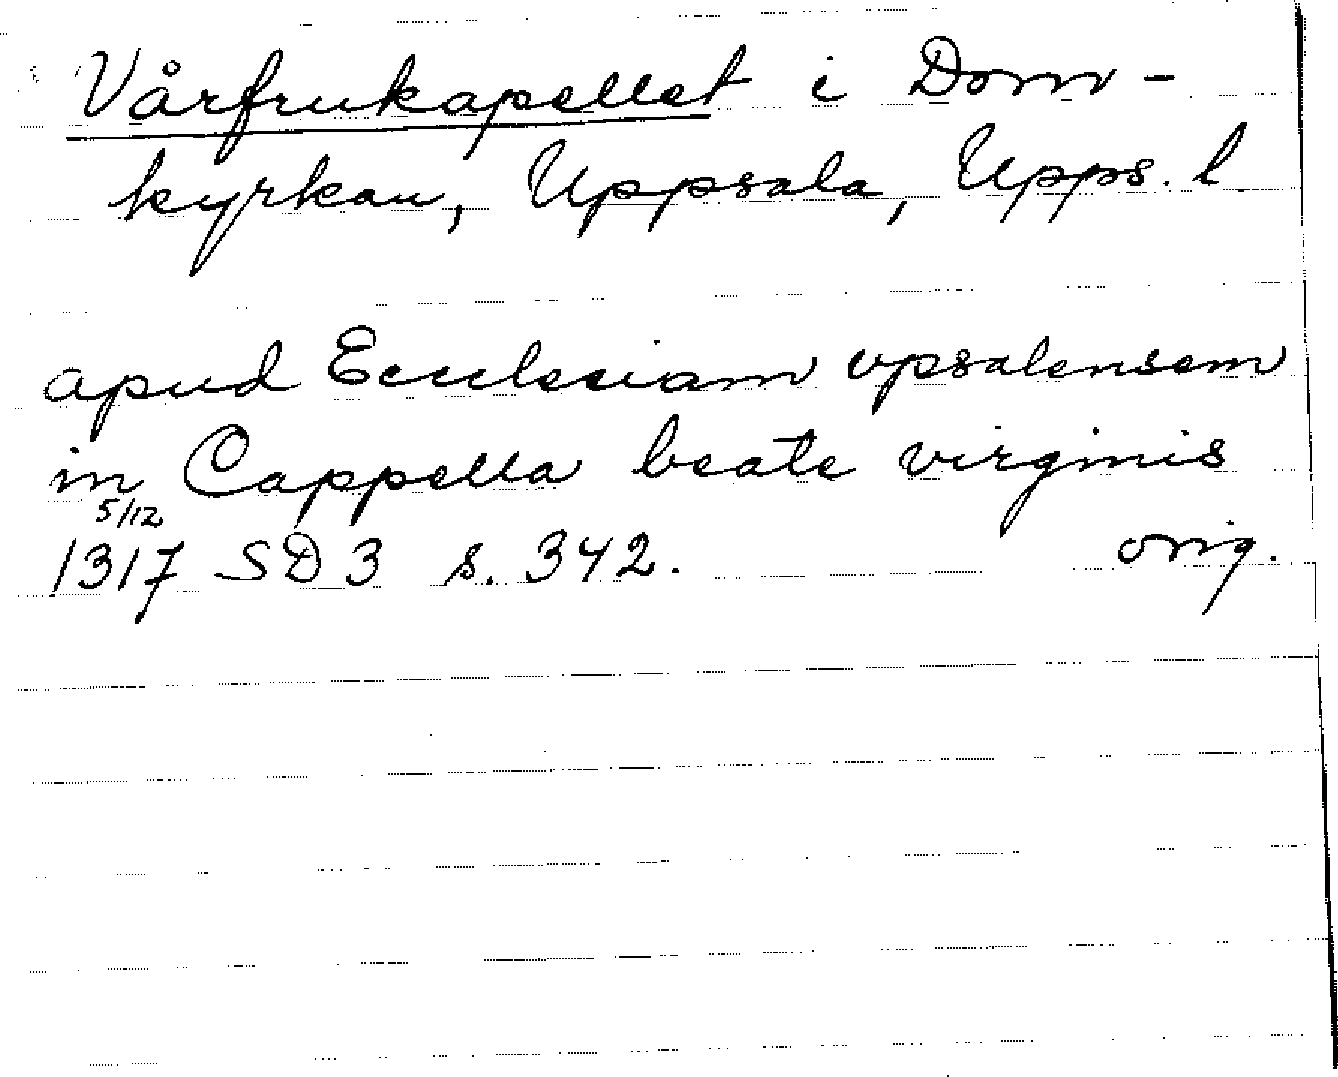 Vårfrukapellet i Dom-
kyrkan, Uppsala, Upps. l
apud Ecclesiam vpsalensem
in Cappella beate virginis
5/12
1317 SD 3 s. 342. orig.